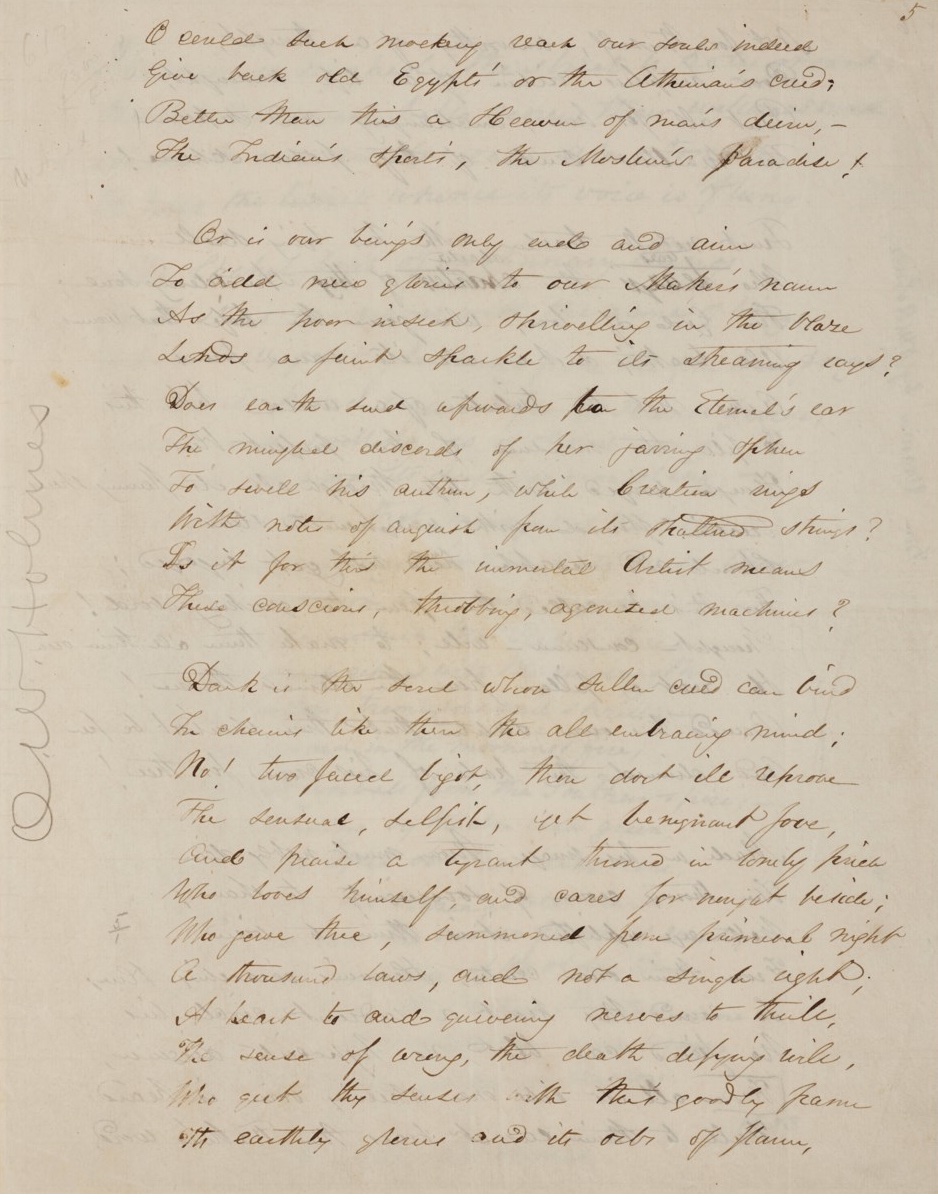 5
O could such mocking reach our souls indeed
Give back old Egypt's or the Athenian's creed;
Better than this a Heaven of man's device,—
The Indian's sports, the Moslem's paradise!
Or is our being's only end and aim
To add new glories to our Maker's name
As the poor insect, shrivelling in the blaze
Lends a faint sparkle to its streaming rays?
Does earth send upwards to the Eternal's ear
The mingled discords of her jarring sphere
To swell his anthem, while Creation rings
With notes of anguish from its shattered strings?
Is it for this the immortal Artist means
These conscious, throbbing, agonized machines?
Dark is the soul whose sullen creed can bind
In chains like these the all embracing mind;
No! two faced bigot, thou dost ill reprove
The sensual, selfish, yet benignant Jove,
And praise a tyrant throned in lonely pride
Who loves himself, and cares for nought beside;
Who gave thee, summoned from primeval night
A thousand laws, and not a single right;
A heart to and quivering nerves to thrill,
The sense of wrong, the death defying will,
Who girt thy senses with this goodly frame
Its earthly glories and its orbs of flame,
O. W. Holmes